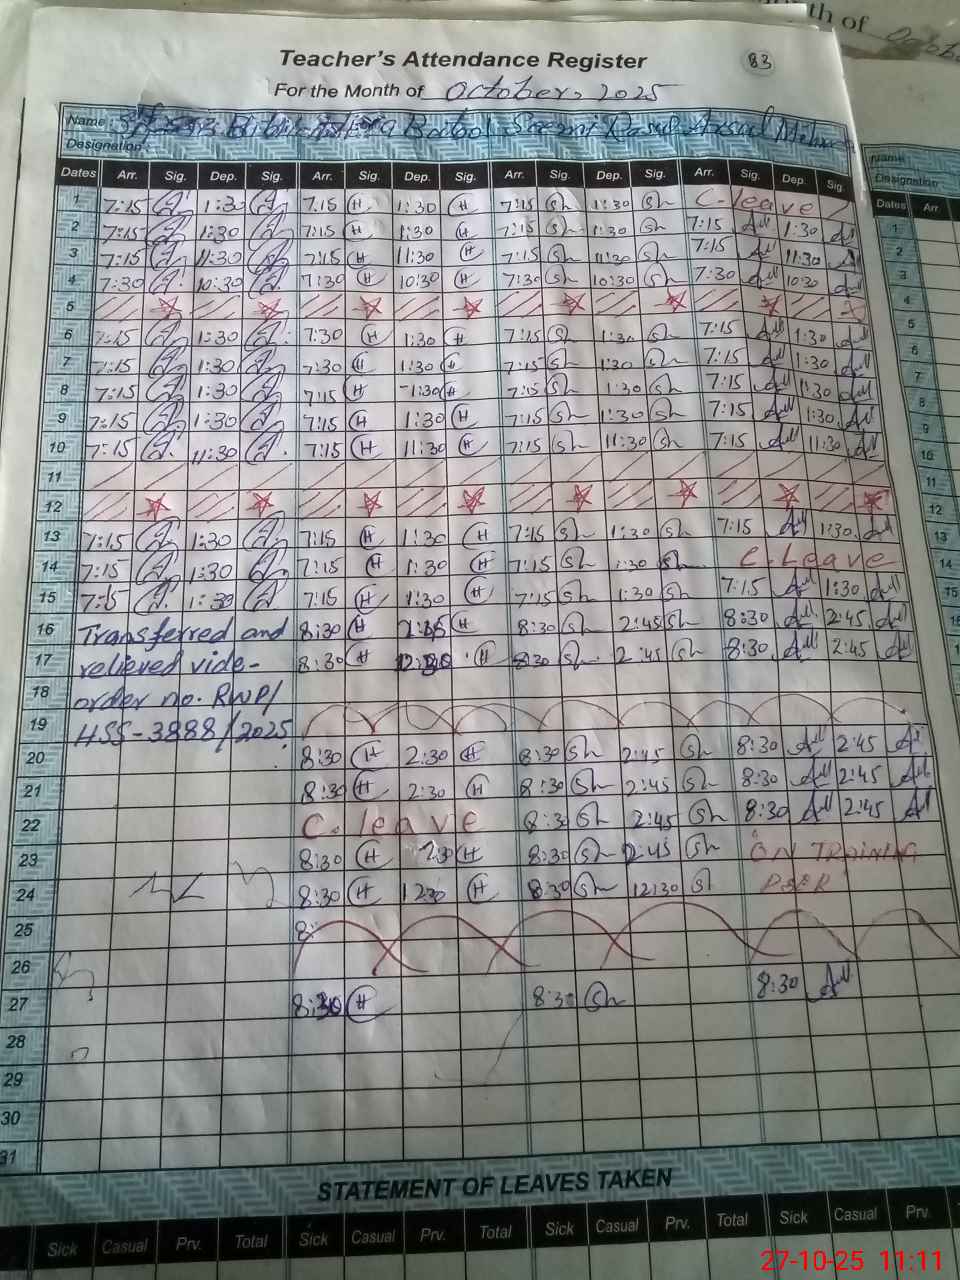 th of October
Teacher's Attendance Register
83
For the Month of October, 2025
Name
Designation
Name
Designation
Dates Arr. Sig. Dep. Sig. Arr. Sig. Dep. Sig. Arr. Sig. Dep. Sig. Arr. Sig. Dep. Sig.
Dates Arr
1 7:15 1:30 7:15 H 1:30 H 7:15 Sh 1:30 Sh C. leave
2 7:15 1:30 7:15 H 1:30 H 7:15 Sh 1:30 Sh 7:15 1:30
3 7:15 11:30 7:15 H 11:30 H 7:15 Sh 11:30 Sh 7:15 11:30
4 7:30 10:30 7:30 H 10:30 H 7:30 Sh 10:30 Sh 7:30 10:30
5
6 7:15 1:30 7:30 H 1:30 H 7:15 Sh 1:30 Sh 7:15 1:30
7 7:15 1:30 7:30 H 1:30 H 7:15 Sh 1:30 Sh 7:15 1:30
8 7:15 1:30 7:15 H 1:30 H 7:15 Sh 1:30 Sh 7:15 1:30
9 7:15 1:30 7:15 H 1:30 H 7:15 Sh 1:30 Sh 7:15 1:30
10 7:15 11:30 7:15 H 11:30 H 7:15 Sh 11:30 Sh 7:15 11:30
11
12
13 7:15 1:30 7:15 H 1:30 H 7:15 Sh 1:30 Sh 7:15 1:30
14 7:15 1:30 7:15 H 1:30 H 7:15 Sh 1:30 Sh C. Leave
15 1:30 7:15 H 1:30 H 7:15 Sh 1:30 Sh 7:15 1:30
16 Transferred and 8:30 H H 8:30 Sh 2:45 Sh 8:30 2:45
17 relieved vide- 8:30 H H 8:30 Sh 2:45 Sh 8:30 2:45
18 order no. RWP/
19 HSS-3888/2025
20 8:30 H 2:30 H 8:30 Sh 2:45 Sh 8:30 2:45
21 8:30 H 2:30 H 8:30 Sh 2:45 Sh 8:30 2:45
22 C. leave 8:30 Sh 2:45 Sh 8:30 2:45
23 8:30 H H 8:30 Sh 2:45 Sh ON TRAINING
24 8:30 H 1230 H 8:30 Sh 12:30 PSER
25 8:
26
27 8:30 H 8:30 Sh 8:30
28
29
30
31
1
2
3
4
5
6
7
8
9
10
11
12
13
14
15
STATEMENT OF LEAVES TAKEN
Sick Casual Prv. Total Sick Casual Prv. Total Sick Casual Prv. Total Sick Casual Prv.
27-10-25 11:11